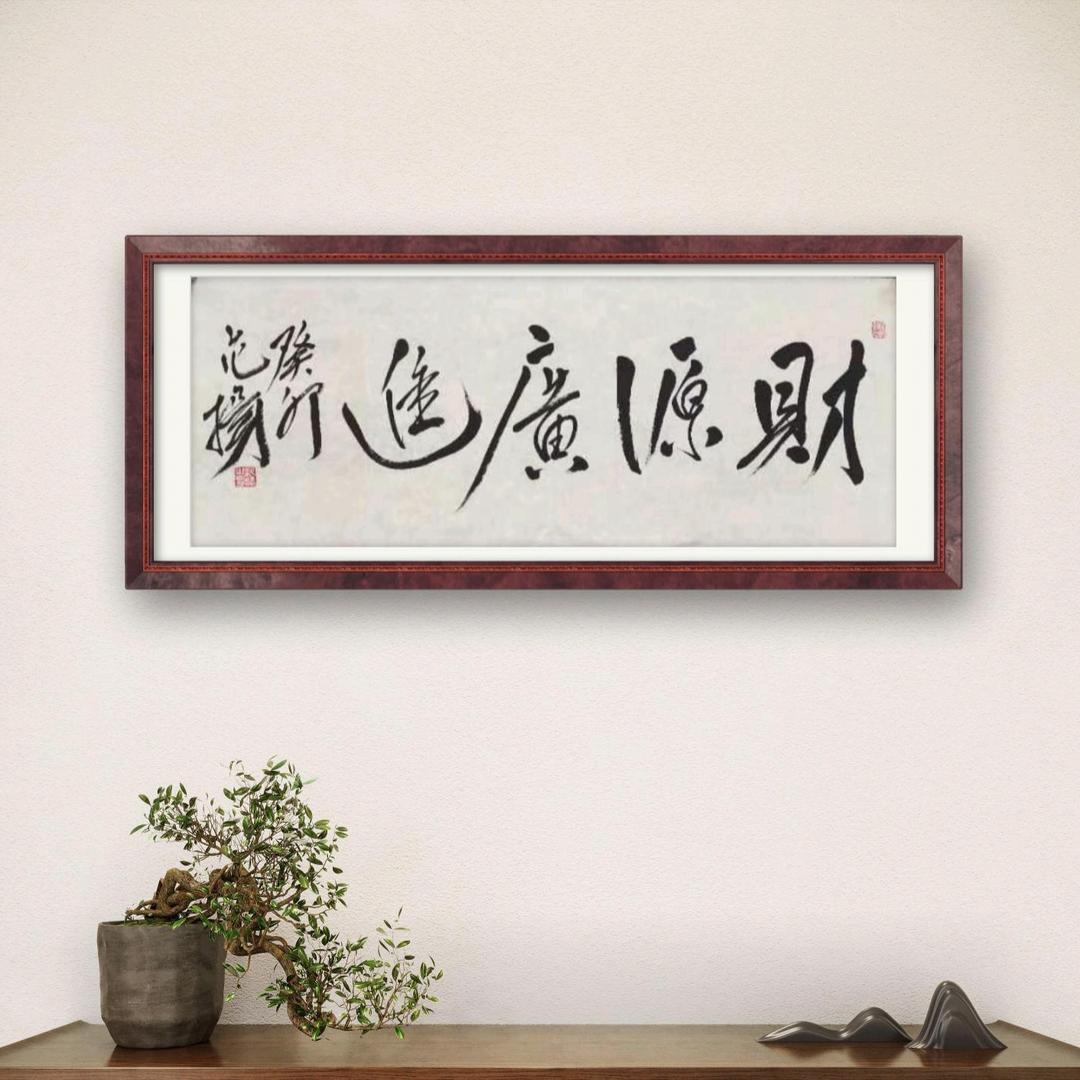 財源廣進
癸卯
范揚